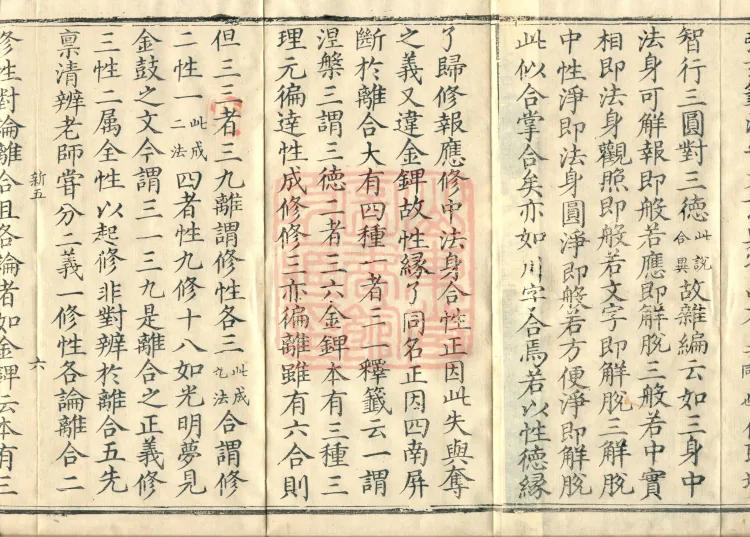 智行三圓對三德此說合異故雜編云如三身中
法身可解報即般若應即解脫三般若中實
相即法身觀照即般若文字即解脫三解脫
中性淨即法身圓淨即般若方便淨即解脫
此似合掌合矣亦如川字合焉若以性德緣
了歸修報應修中法身合性正因此失與奪
之義又違金錍故性緣了同名正因四南屏
斷於離合大有四種一者三一釋籤云一謂
涅槃三謂三德二者三六金錍本有三種三
理元徧達性成修修三亦徧離雖有六合則
但三三者三九離謂修性各三此成九法合謂修
二性一此成二法四者性九修十八如光明夢見
金鼓之文今謂三一三九是離合之正義修
三性二属全性以起修非對辨於離合五先
稟清辨老師嘗分二義一修性各論離合二
新五
六
修性對論離合且各論者如金錍云本有三